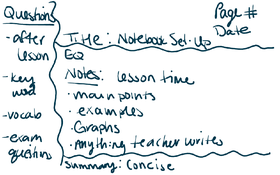 Questions?
Page #
Date
- after
lesson
- key
word
- vocab
- exam
questions
Title: Notebook Set-Up
EQ
Notes: lesson time
· main points
· examples
· Graphs
· Anything teacher writes
Summary: Concise